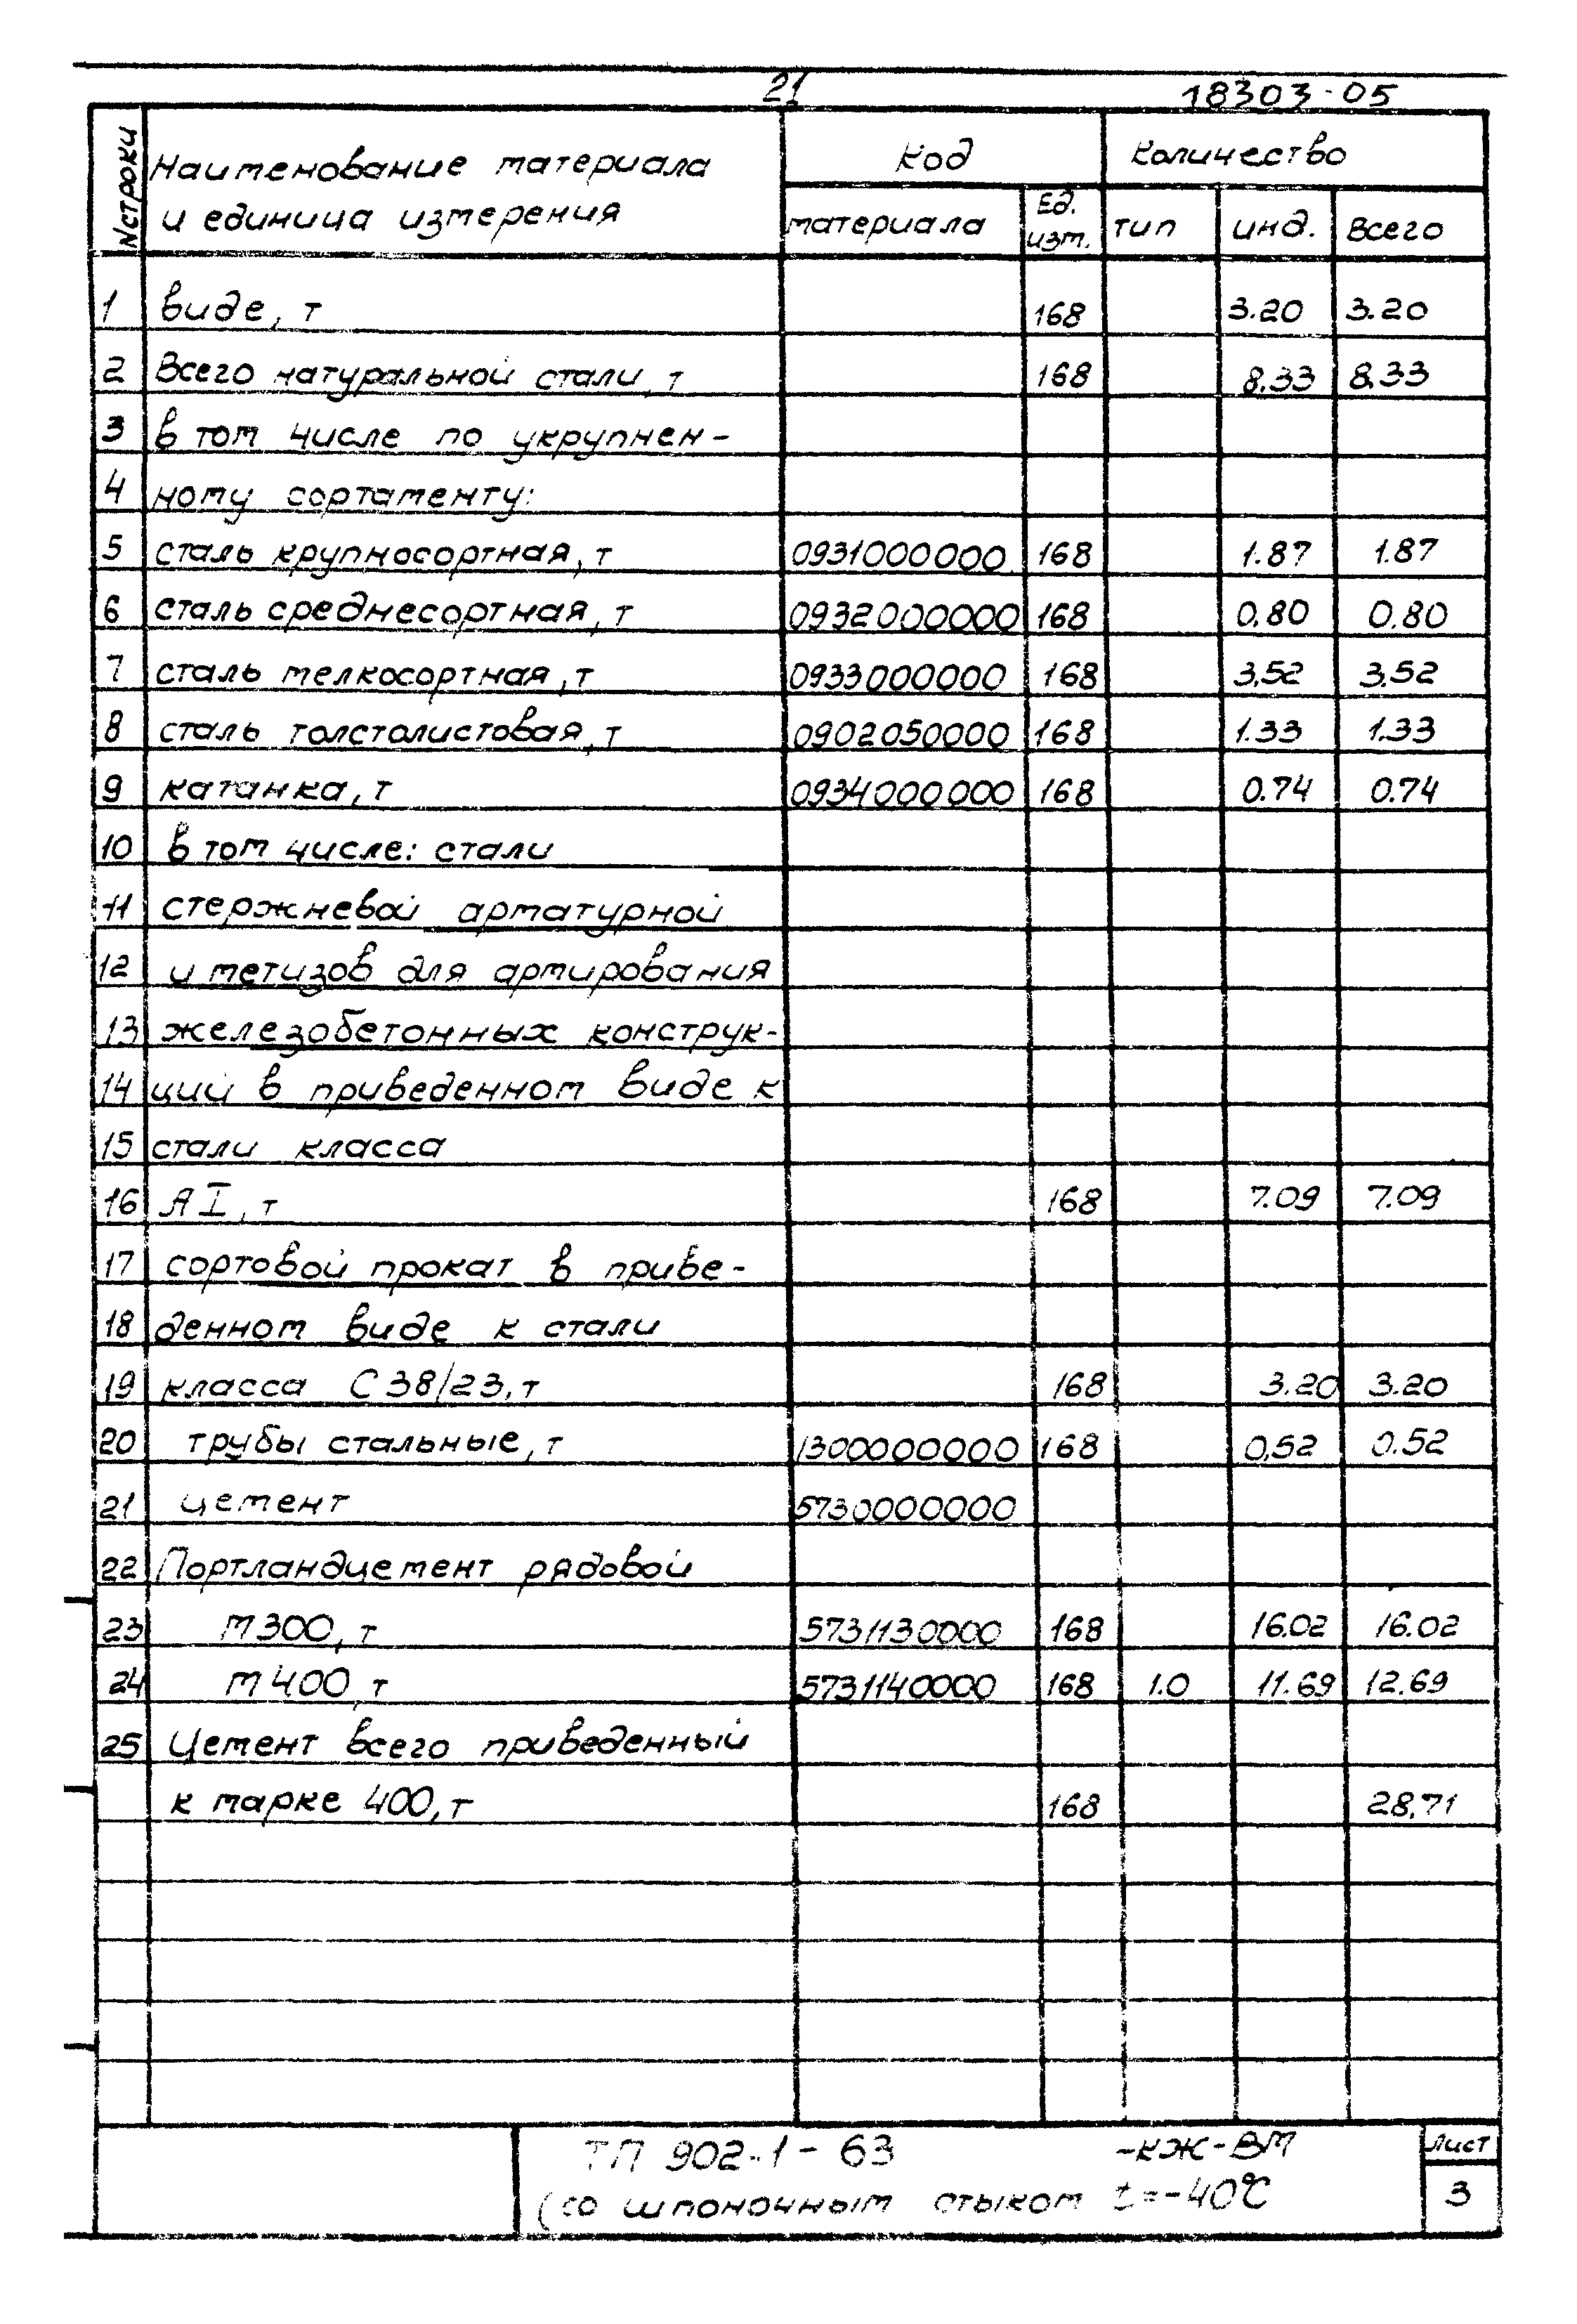 21
18303-05
N строки Наименование материала и единица измерения Код Количество
материала Ед. изм. тип инд. Всего
1 виде, т 168 3.20 3.20
2 Всего натуральной стали, т 168 8.33 8.33
3 в том числе по укрупнен-
4 ному сортаменту:
5 сталь крупносортная, т 0931000000 168 1.87 1.87
6 сталь среднесортная, т 0932000000 168 0.80 0.80
7 сталь мелкосортная, т 0933000000 168 3.52 3.52
8 сталь толстолистовая, т 0902050000 168 1.33 1.33
9 катанка, т 0934000000 168 0.74 0.74
10 в том числе: стали
11 стержневой арматурной
12 и метизов для армирования
13 железобетонных конструк-
14 ций в приведенном виде к
15 стали класса
16 А I, т 168 7.09 7.09
17 сортовой прокат в приве-
18 денном виде к стали
19 класса С 38/23, т 168 3.20 3.20
20 трубы стальные, т 1300000000 168 0,52 0.52
21 цемент 5730000000
22 Портландцемент рядовой
23 М 300, т 5731130000 168 16.02 16.02
24 М 400, т 5731140000 168 1.0 11.69 12.69
25 Цемент всего приведенный
к марке 400, т 168 28.71
ТП 902-1-63 -КЖ-ВМ Лист
(со шпоночным стыком t=-40°С 3